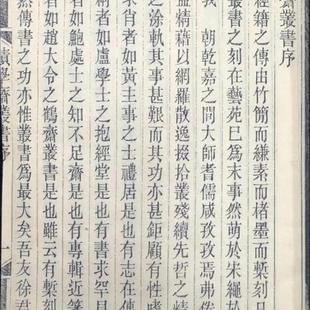 齋叢書序
經籍之傳由竹簡而縑素而楮墨而槧刻日
叢書之刻在藝苑已爲末事然萌於宋繩於
我 朝乾嘉之間大師耆儒咸孜孜焉弗倦
益精藉以網羅散逸掇拾叢殘續先哲之精
之涂軌其事甚艱而其功亦甚鉅顧有性
求肖者如黃主事之士禮居是也有志在傳
者如盧學士之抱經堂是也有書求罕見
者如鮑處士之知不足齋是也有專輯近
者如趙大令之鶴齋叢書是也雖云有槧
然傳書之功亦惟叢書爲最大矣吾友徐君
積學齋叢書序 一